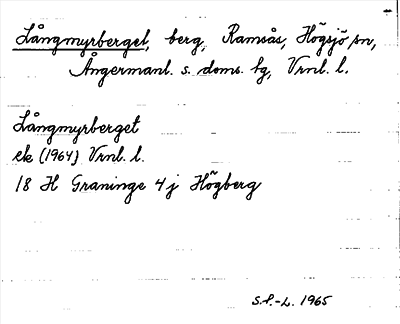 Långmyrberget, berg, Ramsås, Högsjö sn,
Ångermanl. s. doms. hg, Vrnl. l.
Långmyrberget
ek (1964) Vrnl. l.
18 H Graninge 4j Högberg
S.P.-L. 1965